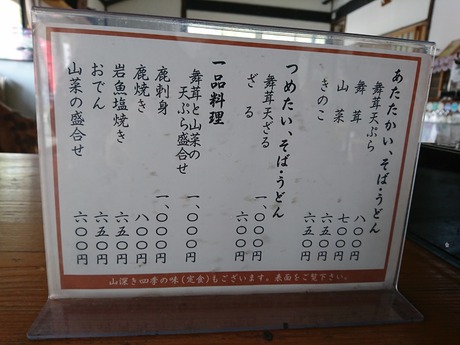 あたたかい、そば・うどん
舞茸天ぷら 八〇〇円
舞茸 七〇〇円
山菜 六五〇円
きのこ 六五〇円
つめたい、そば・うどん
舞茸天ざる 一、〇〇〇円
ざる 六〇〇円
一品料理
舞茸と山菜の
天ぷら盛合せ 一、〇〇〇円
鹿刺身 一、〇〇〇円
鹿焼き 八〇〇円
岩魚塩焼き 六五〇円
おでん 六五〇円
山菜の盛合せ 六〇〇円
山深き四季の味(定食)もございます。表面をご覧下さい。